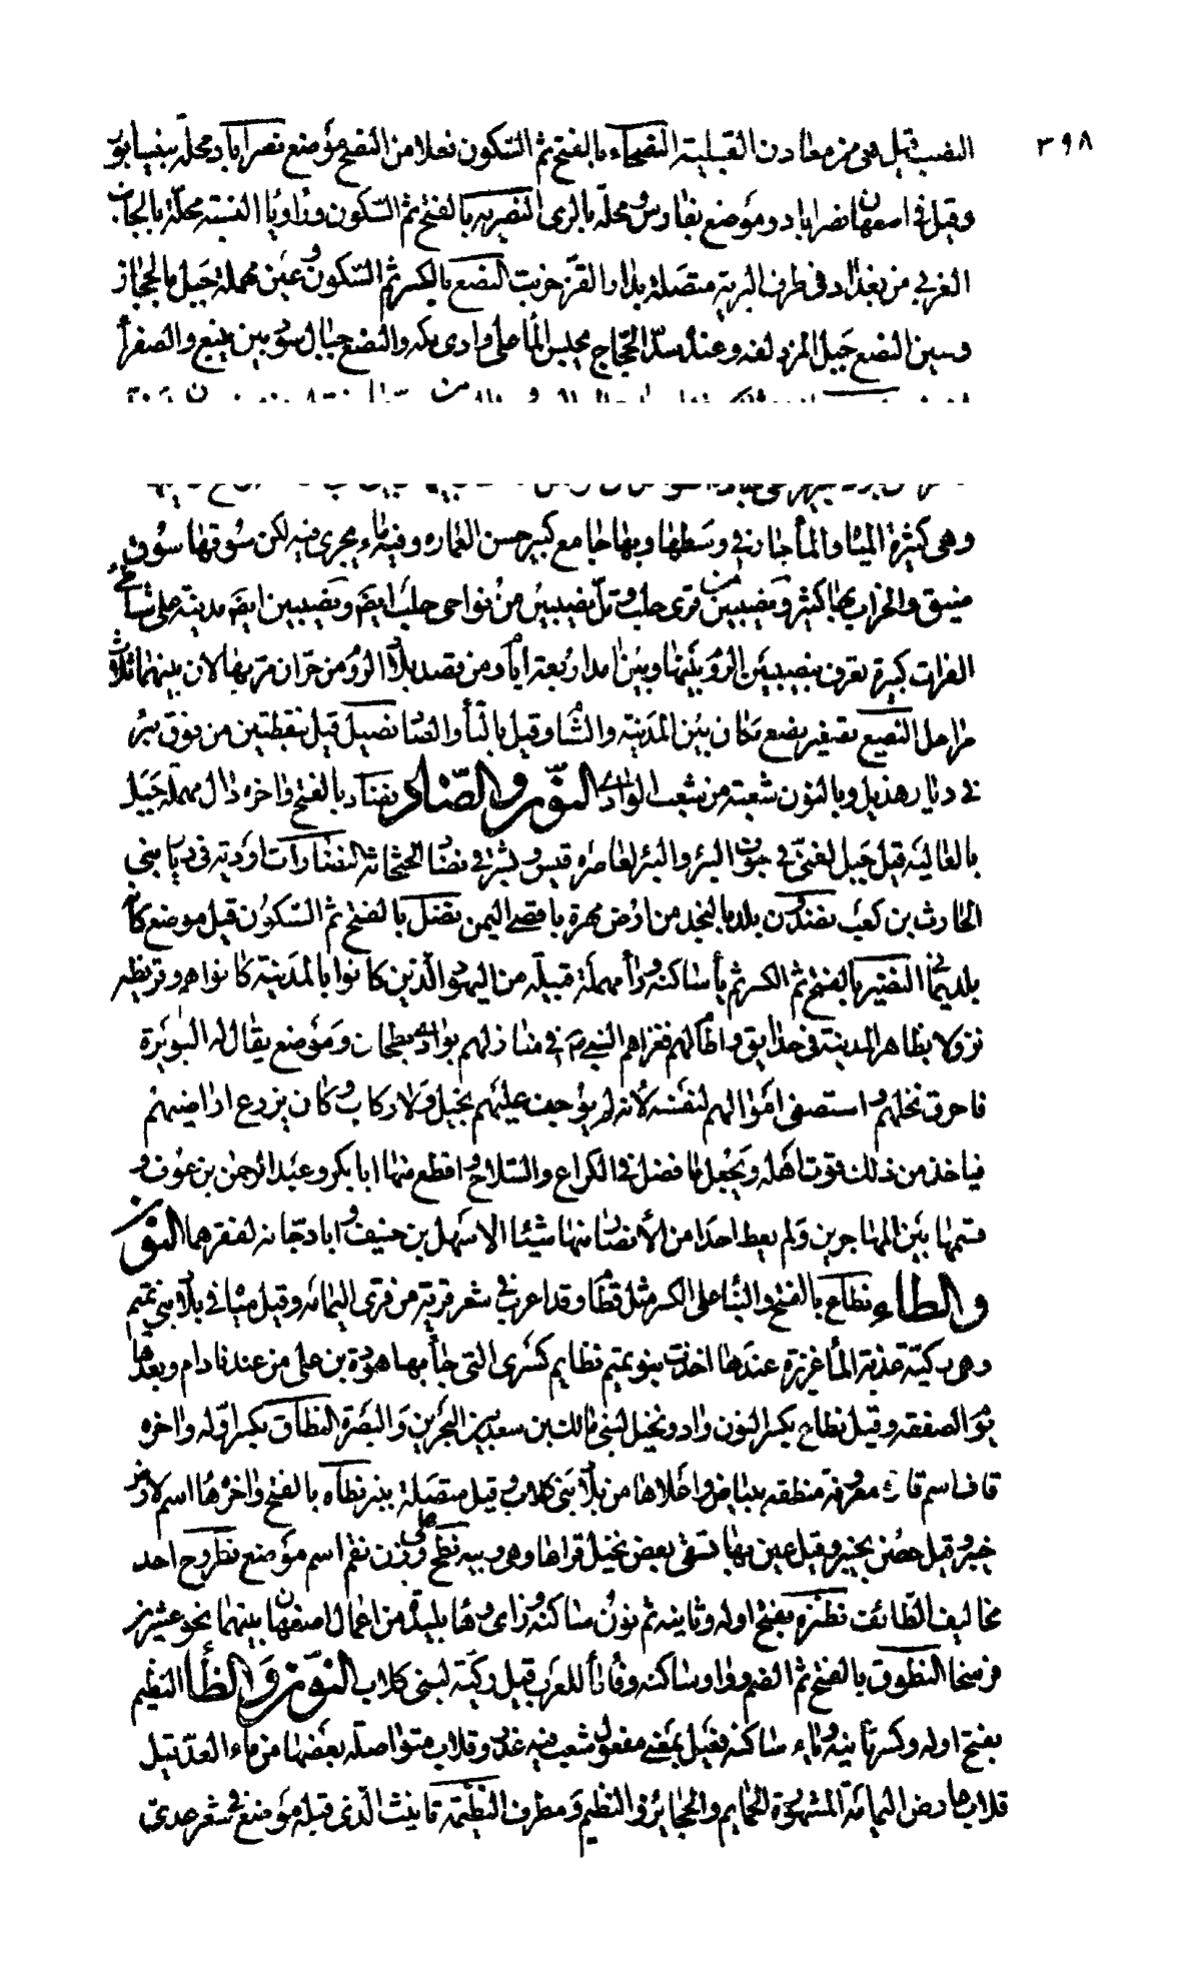 ٣٩٨
النصب قيل هي من معادن القبلية النصحاء بالفتح ثم السكون فعلا من النصح موضع نصراباد محلة بنيسابور
وقيل في اصفهان نصراباد وموضع بفارس ومحلة بالري النصرية بالفتح ثم السكون وراويا النسبة محلة بالجانب
الغربي من بغداد في طرف البرية متصلة بدار القز خربت النصع بالكسر ثم السكون وعين مهملة جبل بالحجاز
وبين النصع جبل المزدلفة وعنده سد الحجاج يحبس الماء على وادي مكة والنصع جبال سود بين ينبع والصفراء
وهي كثيرة المياه والماء جار في وسطها وبها جامع كبير حسن العمارة وفيه ماء يجري فيه لكن سوقها سوق
ضيق والخراب بها كثير ونصيبين من قرى حلب وتل نصيبين من نواحي حلب ايضا ونصيبين ايضا مدينة على شاطئ
الفرات كبيرة تعرف بنصيبين الروم بينها وبين امد اربعة ايام ومن قصد بلاد الروم من حران مر بها لان بينهما ثلاث
مراحل النصيع تصغير نصع مكان بين المدينة والشام وقيل بالباء والضاد نصيل قيل بنقطتين من فوق بئر
في ديار هذيل وبالنون شعبة من شعب الوادي النون والضاد نضاد بالفتح واخره دال مهملة جبل
بالعالية قيل جبل لغني في جوف البئر والبئر لغاضرة قيس وبشر في نضاد الجثجاثة النضارات اودية في ديار بني
الحارث بن كعب نضدون بلد بالنجد من ارض مهرة باقصى اليمن نضل بالفتح ثم السكون قيل موضع كان
بلد فيما النضير بالفتح ثم الكسر ثم ياء ساكنة وراء مهملة قبيلة من اليهود الذين كانوا بالمدينة كانوا هم وقريظة
نزولا بظاهر المدينة في حدائق واطام لهم فغزاهم النبي ص في منازلهم بوادي بطحان وموضع يقال له البويرة
فاحرق نخلهم واستصفى اموالهم لنفسه لانه لم يوجف عليهم بخيل ولا ركاب وكان يزرع اراضيهم
فياخذ من ذلك قوت اهله ويجعل ما فضل في الكراع والسلاح واقطع منها ابا بكر وعبد الرحمن بن عوف و
قسمها بين المهاجرين ولم يعط احدا من الأنصار منها شيئا الا سهل بن حنيف وابا دجانة لفقرهما النون
والطاء نطاع بالفتح والبناء على الكسر مثل قطام وقد اعرب في شعر قرية من قرى اليمامة وقيل مياه في بلاد بني تميم
وهي ركية عذبة الماء غزيرة عندها اخذت بنو تميم نظايم كسرى التي جاء بها هوذة بن علي من عند بادام وبعدها
يوم الصفقة وقيل نطاع بكسر النون واد ونخيل لبني مالك بن سعد بين البحرين والبصرة النطاق بكسر اوله واخره
قاف اسم قارة معروفة منطقة ببياض واعلاها من بلاد بني كلاب وقيل متصلة نطاه بالفتح واخره هاء اسم لارض
خيبر وقيل حصن بخيبر وقيل عين بها تسقي بعض نخيل قراها وهي وبيه نطح وزن نفع اسم موضع نطروح احد
مخاليف الطائف نطنزه بفتح اوله وثانيه ثم نون ساكنة وزاي وهاء بليدة من اعمال اصفهان بينهما نحو عشرين
فرسخا النطوف بالفتح ثم الضم وواو ساكنة وفاء ماء للعرب قيل ركية لبني كلاب النون والظاء النظيم
بفتح اوله وكسر ثانيه وياء ساكنة فعيل بمعنى مفعول شعب فيه غدر وقلاب متواصلة بعضها من ماء الغدير قيل
قلاب بعارض اليمامة المشهورة الحمايم والحجايز والنظيم ومطرف النظيمة تانيث الذي قبله موضع في شعر عدي